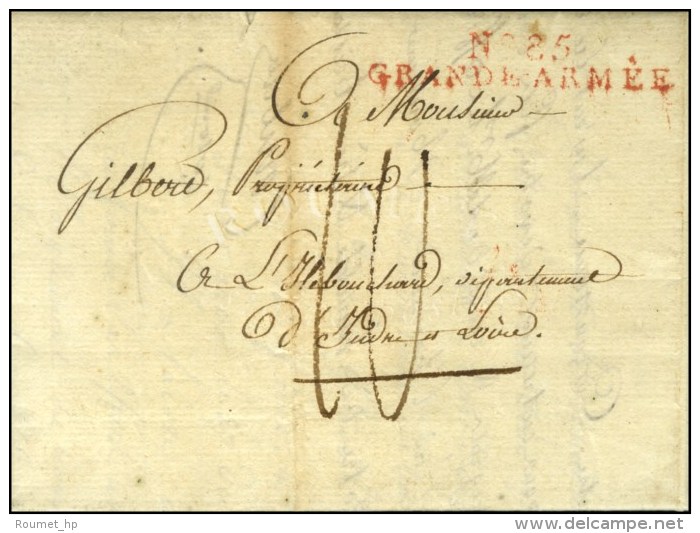 No 85
GRANDE-ARMÉE
A Monsieur
Gilbert, Propriétaire
A L'Ilebouchard, département
d'Indre et Loire.
10
Roumet_hp
www.delcampe.net